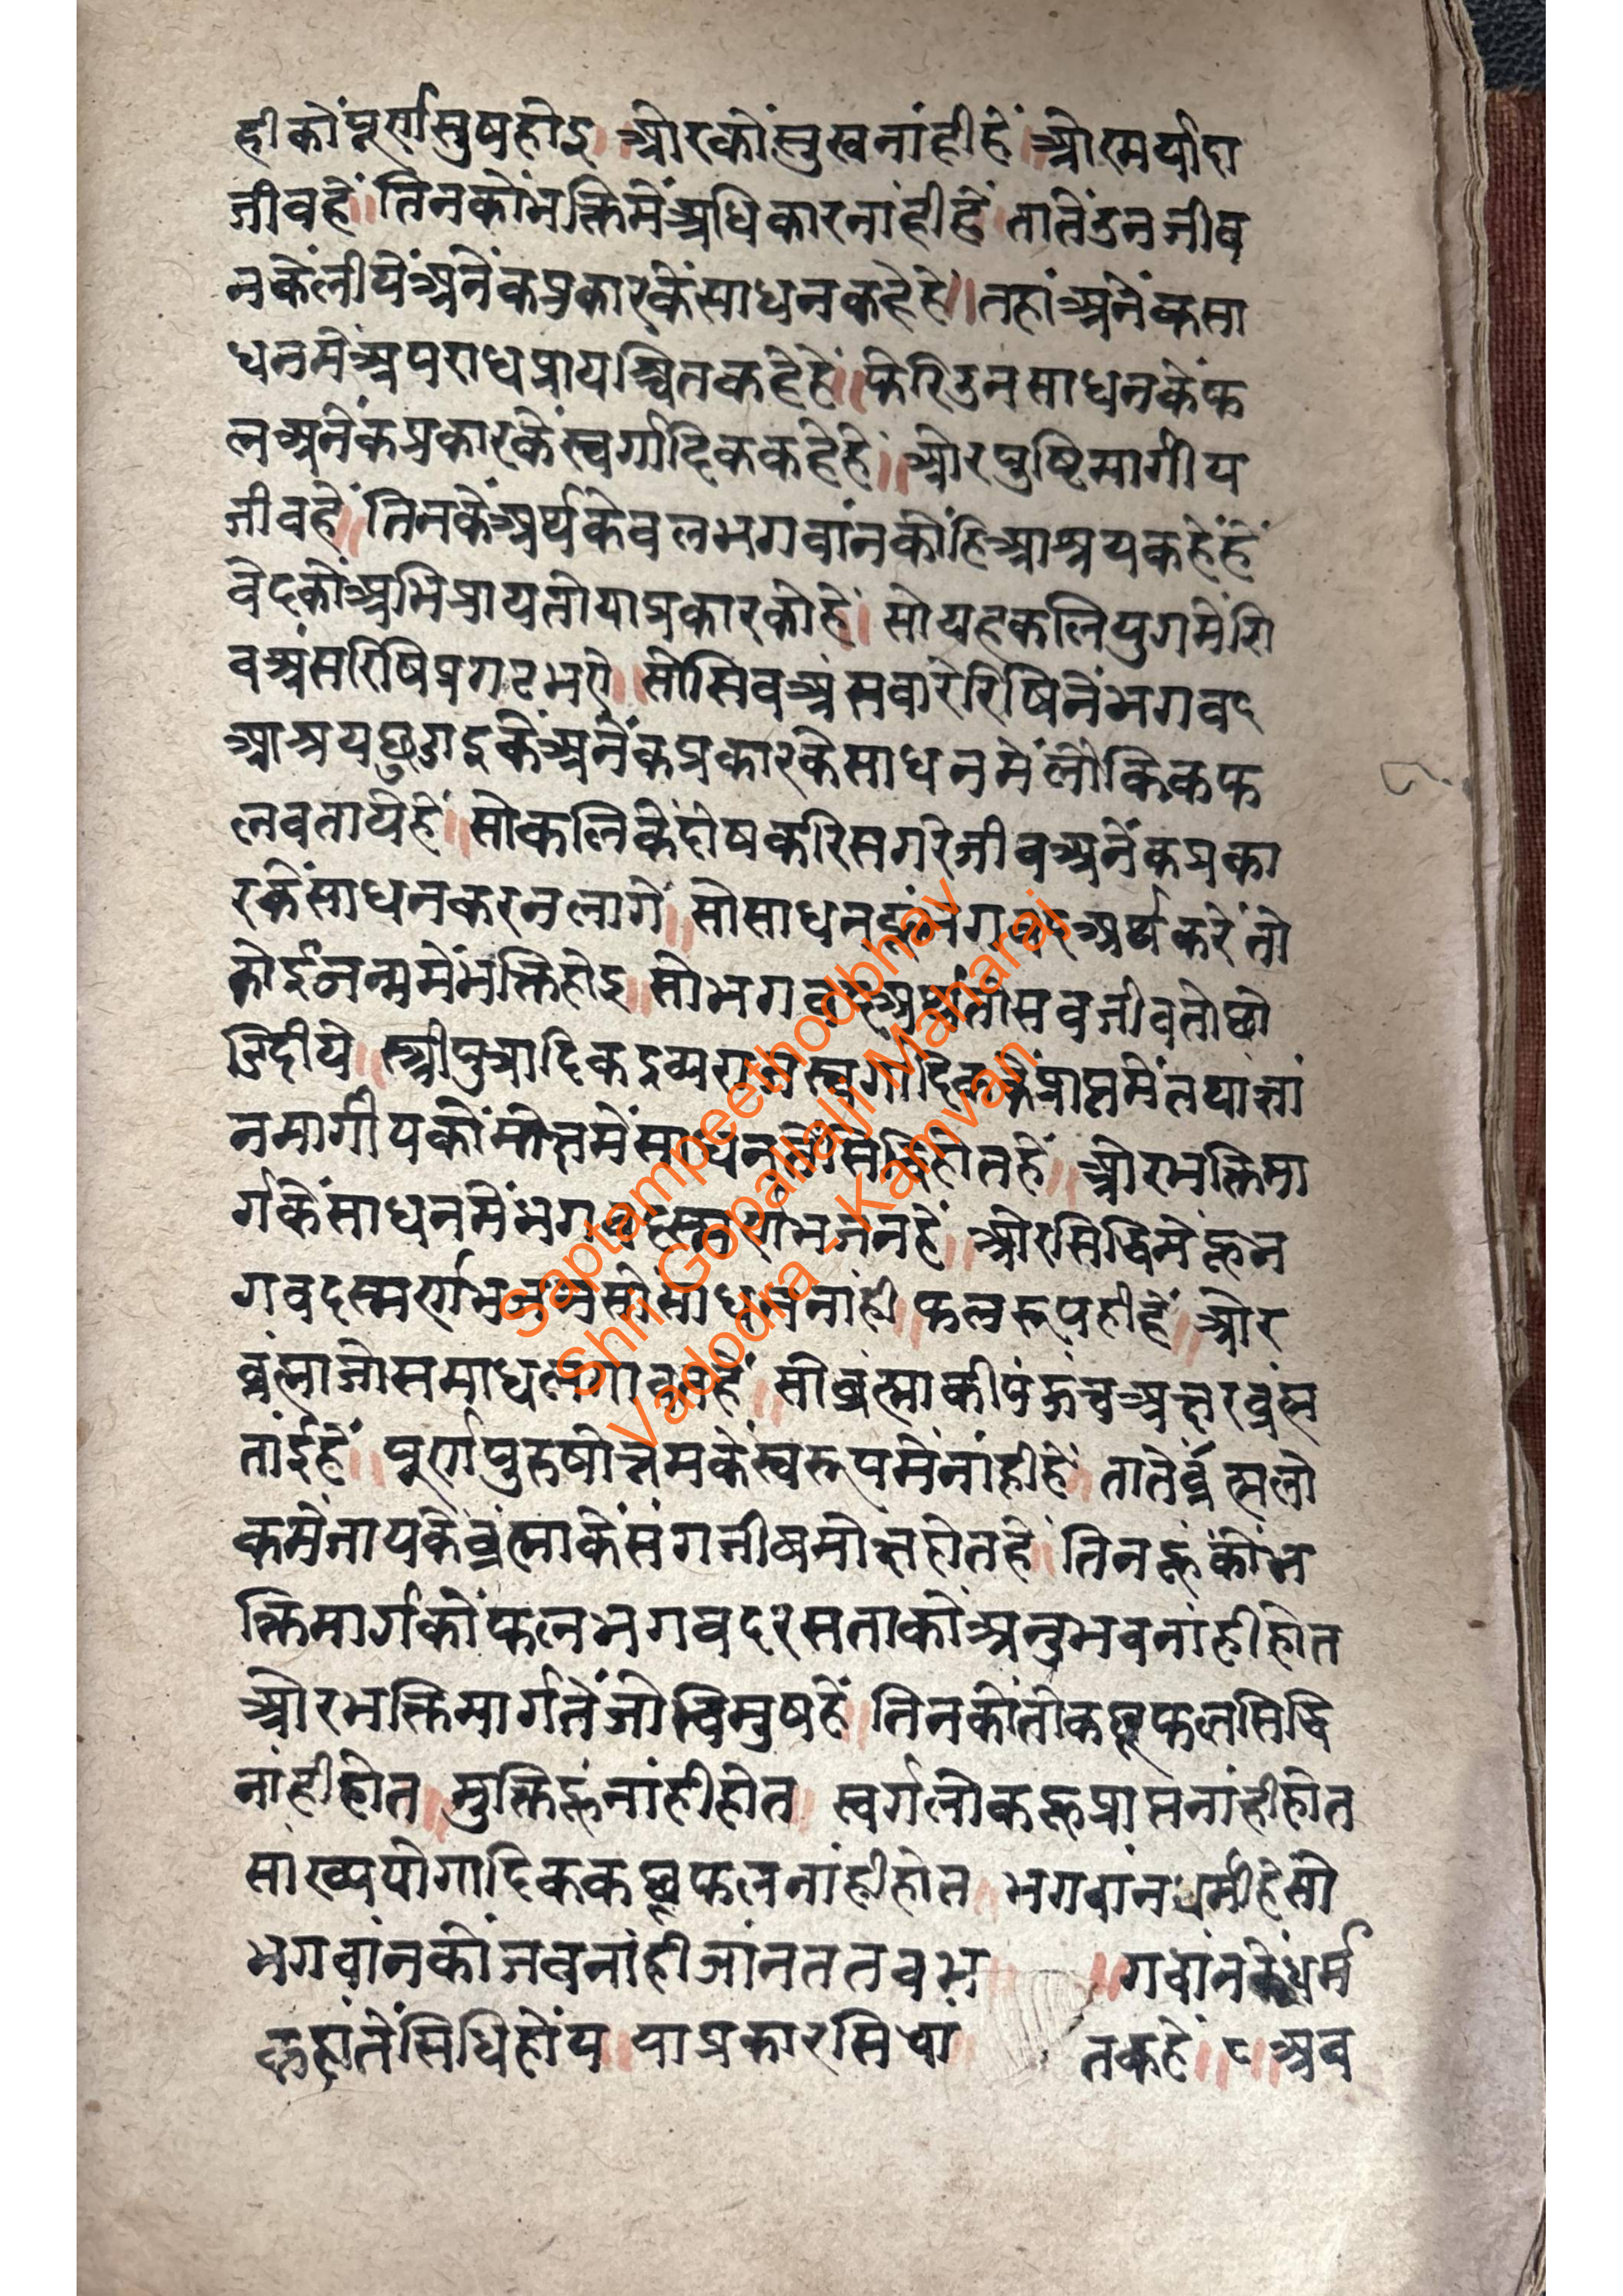 हीकोंपूर्णसुषहोइ ॥ ओरकोंसुखनांहीहें ॥ ओरमर्यादा
जीवहें ॥ तिनकोंभक्तिमेंअधिकारनांहीहें ॥ तातेंउनजीव
नकेंलीयेंअनेंकप्रकारकेंसाधनकहेहें ॥ तहांअनेंकसा
धनमेंअपराधप्रायश्चितकहेहें ॥ फेरिउनसाधनकेंफ
लअनेंकप्रकारकेंस्वर्गादिककहेहें ॥ ओरपुष्टिमार्गीय
जीवहें ॥ तिनकेंअर्थकेवलभगवांनकोंहिआश्रयकहेंहें
वेदकोंअभिप्राययतोयाप्रकारकोहें । सोयहकलियुगमेंशि
वअंसरिषिप्रगटभऐ ॥ सोसिवअंसवारेरिषिनेंभगवद
आश्रयछुडाइकेंअनेंकप्रकारकेसाधनमेंलौकिकफ
लवतायेहें ॥ सोकलिकेंदोषकरिसगरेजीवअनेंकप्रका
रकेंसाधनकरनलागे ॥ सोसाधनहूंभगवदअर्थकरेंतो
कोईजन्ममेंभक्तिहोइ ॥ सोभगवदअर्थतोसवजीवतोछो
डिदीये ॥ स्त्रीपुत्रादिकद्रव्यराजस्वर्गादिककेंप्राप्तमेंतथाज्ञां
नमार्गीयकोंमोक्षमेंसाधनतोसिद्धिहोतहें ॥ ओरभक्तिमा
र्गकेंसाधनमेंभगवदस्मर्णभजनहें ॥ ओरसिद्धिमेंहूभ
गवदस्मर्णभजनसोसाधननांही ॥ फलरूपहीहें ॥ ओर
ब्रंह्माजोसमाधलगावतहें ॥ सोब्रंह्माकीपंहुंचअक्षरब्रंह्म
तांईहें ॥ पूर्णपुरुषोत्तमकेंस्वरूपमेंनांहीहें ॥ तातेंब्रंह्मलो
कमेंजायकेब्रंह्माकेंसंगजीवमोक्षहोतहे ॥ तिनहूंकोंभ
क्तिमार्गकोंफलभगवदरसताकोंअनुभवनांहीहोत
ओरभक्तिमार्गतेंजोविमुषहें ॥ तिनकोंतोकछूफलसिद्धि
नांहीहोत ॥ मुक्तिहूंनांहीहोत ॥ स्वर्गलोकहूप्राप्तनांहीहोत
सांख्ययोगादिककछूफलनांहीहोत ॥ भगवांनधर्मीहेसो
भगवांनकोंजवनांहीजांनततवभ ॥ गवांनकेधर्म
कहांतेंसिधिहोंय ॥ याप्रकारसिधां तकहें ॥ ८ ॥ अव
Saptampeethodbhav
Shri Gopallalji Maharaj
Vadodra - Kamvan